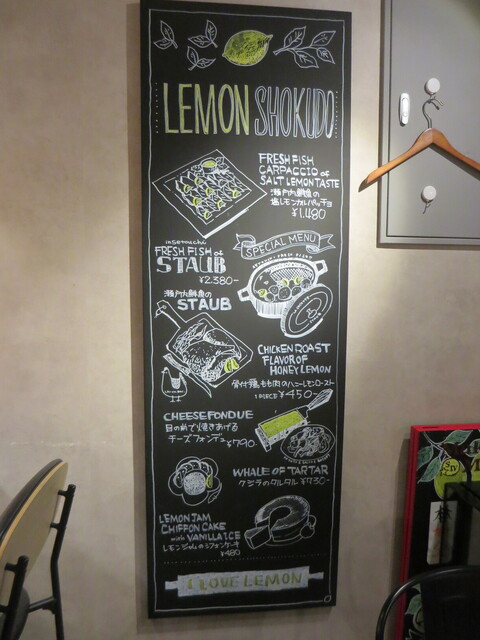 LEMON SHOKUDO
FRESH FISH
CARPACCIO of
SALT LEMON TASTE
瀬戸内鮮魚の
塩レモンカルパッチョ
¥1.480
insetouchi
FRESH FISH of
STAUB
¥2.380-
瀬戸内鮮魚の
STAUB
SPECIAL MENU
CHICKEN ROAST
FLAVOR OF
HONEY LEMON
骨付鶏もも肉のハニーレモンロースト
1 PIECE ¥450-
CHEESE FONDUE
目の前で焼きあげる
チーズフォンデュ ¥790-
WHALE OF TARTAR
クジラのタルタル ¥730-
LEMON JAM
CHIFFON CAKE
with VANILLA ICE
レモンジャムのシフォンケーキ
¥480
I LOVE LEMON